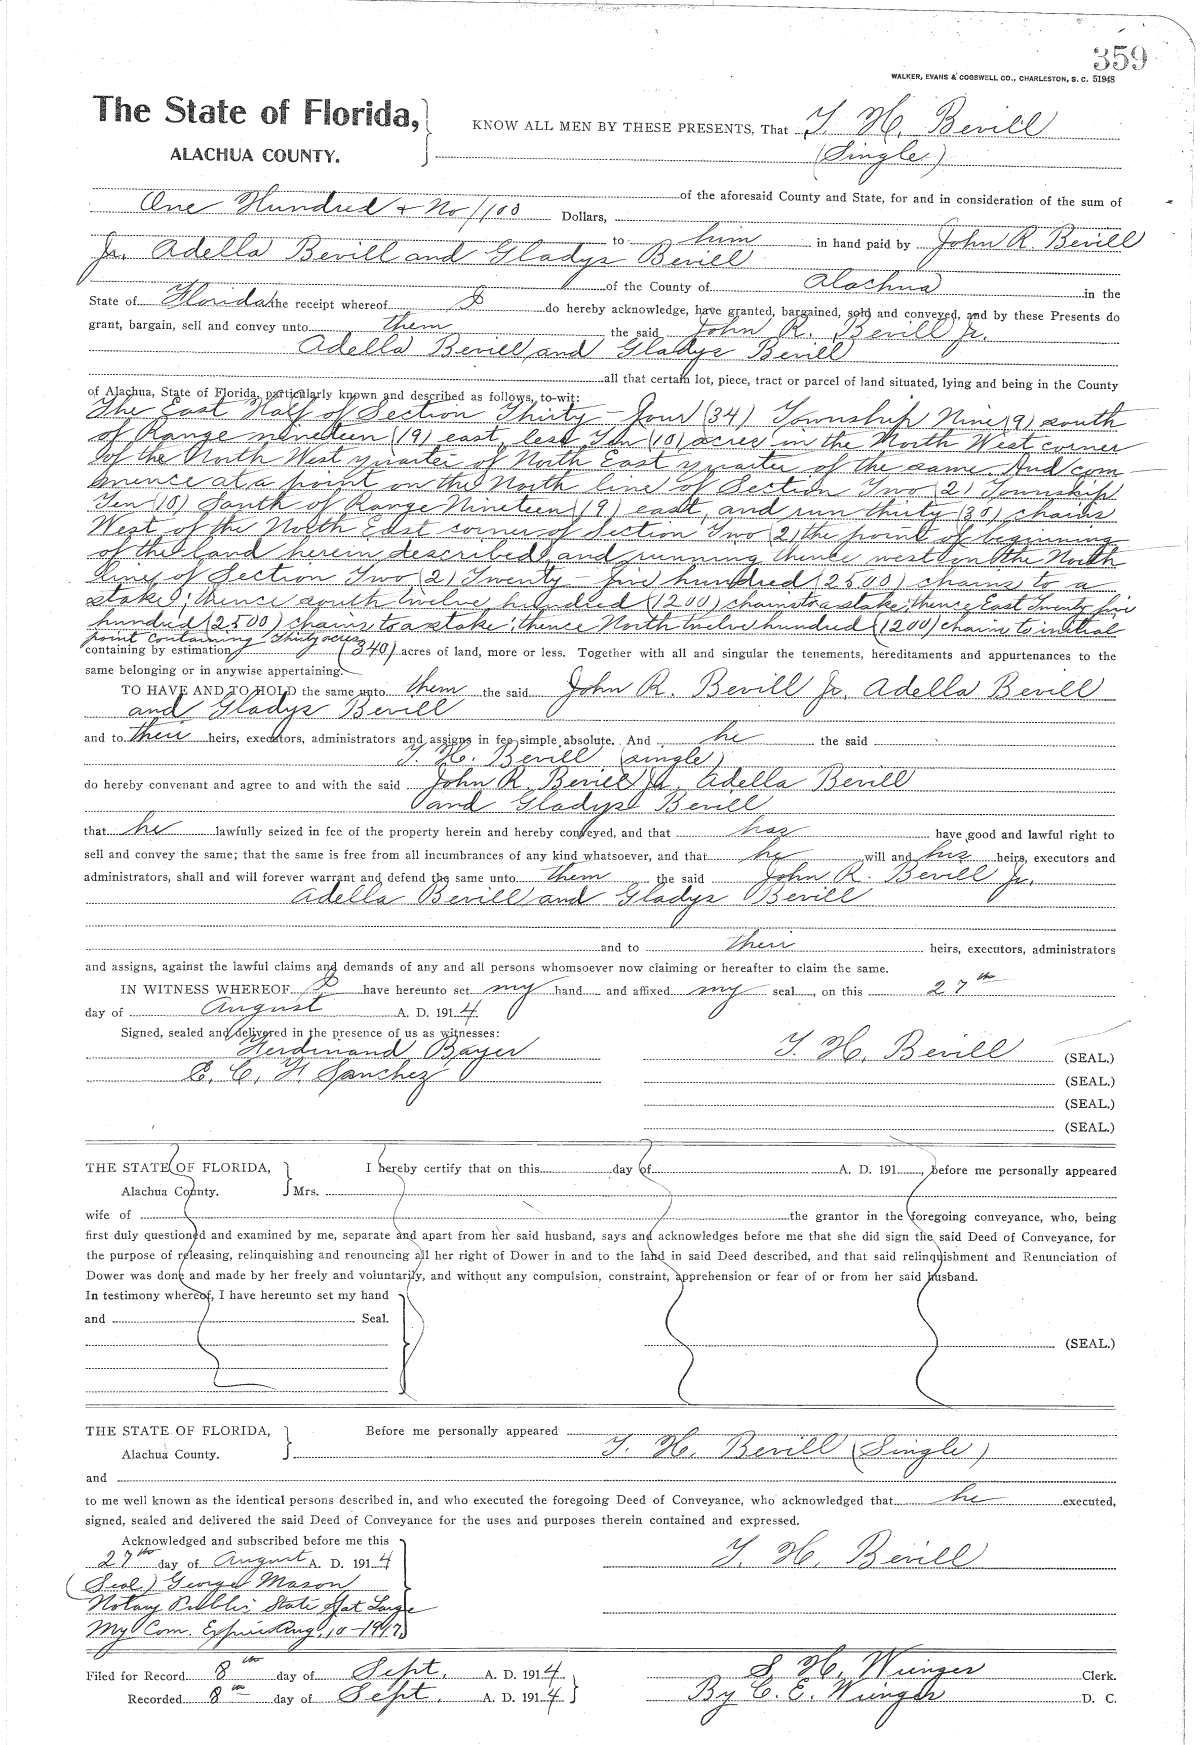 359
WALKER, EVANS & COGSWELL CO., CHARLESTON, S. C. 51948
The State of Florida,
ALACHUA COUNTY.
KNOW ALL MEN BY THESE PRESENTS, That T. H. Bevill
(Single)
of the aforesaid County and State, for and in consideration of the sum of
One Hundred + No/100 Dollars,
to him in hand paid by John R Bevill
Jr. Adella Bevill and Gladys Bevill
of the County of Alachua in the
State of Florida the receipt whereof I do hereby acknowledge, have granted, bargained, sold and conveyed, and by these Presents do
grant, bargain, sell and convey unto them the said John R. Bevill Jr.
Adella Bevill and Gladys Bevill
all that certain lot, piece, tract or parcel of land situated, lying and being in the County
of Alachua, State of Florida, particularly known and described as follows, to-wit:
The East Half of Section Thirty-four (34) Township Nine (9) south
of Range nineteen (19) east, less Ten (10) acres in the North West corner
of the North West quarter of North East quarter of the same. And com
mence at a point on the North line of Section Two (2) Township
Ten (10) South of Range Nineteen (19) east, and run thirty (30) chains
West of the North East corner of Section Two (2) the point of beginning
of the land herein described, and running thence west on the North
line of Section Two (2) Twenty-five hundred (2500) chains to a
stake; thence south twelve hundred (1200) chains to a stake; thence East Twenty five
hundred (2500) chains to a stake; thence North twelve hundred (1200) chains to initial
point containing Thirty acres
containing by estimation (340) acres of land, more or less. Together with all and singular the tenements, hereditaments and appurtenances to the
same belonging or in anywise appertaining.
TO HAVE AND TO HOLD the same unto them the said John R. Bevill Jr. Adella Bevill
and Gladys Bevill
and to their heirs, executors, administrators and assigns in fee simple absolute. And he the said
T. H. Bevill (single)
do hereby convenant and agree to and with the said John R. Bevill Jr. Adella Bevill
and Gladys Bevill
that he lawfully seized in fee of the property herein and hereby conveyed, and that has have good and lawful right to
sell and convey the same; that the same is free from all incumbrances of any kind whatsoever, and that he will and his heirs, executors and
administrators, shall and will forever warrant and defend the same unto them the said John R. Bevill Jr.
Adella Bevill and Gladys Bevill
and to their heirs, executors, administrators
and assigns, against the lawful claims and demands of any and all persons whomsoever now claiming or hereafter to claim the same.
IN WITNESS WHEREOF I have hereunto set my hand and affixed my seal, on this 27th
day of August A. D. 1914.
Signed, sealed and delivered in the presence of us as witnesses:
Ferdinand Bayer
E. C. F. Sanchez
T. H. Bevill (SEAL.)
(SEAL.)
(SEAL.)
(SEAL.)
THE STATE OF FLORIDA,
Alachua County.
I hereby certify that on this day of A. D. 191, before me personally appeared
Mrs.
wife of the grantor in the foregoing conveyance, who, being
first duly questioned and examined by me, separate and apart from her said husband, says and acknowledges before me that she did sign the said Deed of Conveyance, for
the purpose of releasing, relinquishing and renouncing all her right of Dower in and to the land in said Deed described, and that said relinquishment and Renunciation of
Dower was done and made by her freely and voluntarily, and without any compulsion, constraint, apprehension or fear of or from her said husband.
In testimony whereof, I have hereunto set my hand
and Seal.
(SEAL.)
THE STATE OF FLORIDA,
Alachua County.
Before me personally appeared
T. H. Bevill (Single)
and
to me well known as the identical persons described in, and who executed the foregoing Deed of Conveyance, who acknowledged that he executed,
signed, sealed and delivered the said Deed of Conveyance for the uses and purposes therein contained and expressed.
Acknowledged and subscribed before me this
27th day of August A. D. 1914
T. H. Bevill
(Seal) George Mason
Notary Public State of at Large
My Com. Expires Aug. 10-1917
Filed for Record 8th day of Sept. A. D. 1914
S. H. Wienges Clerk.
Recorded 8th day of Sept. A. D. 1914
By C. E. Wienges D. C.